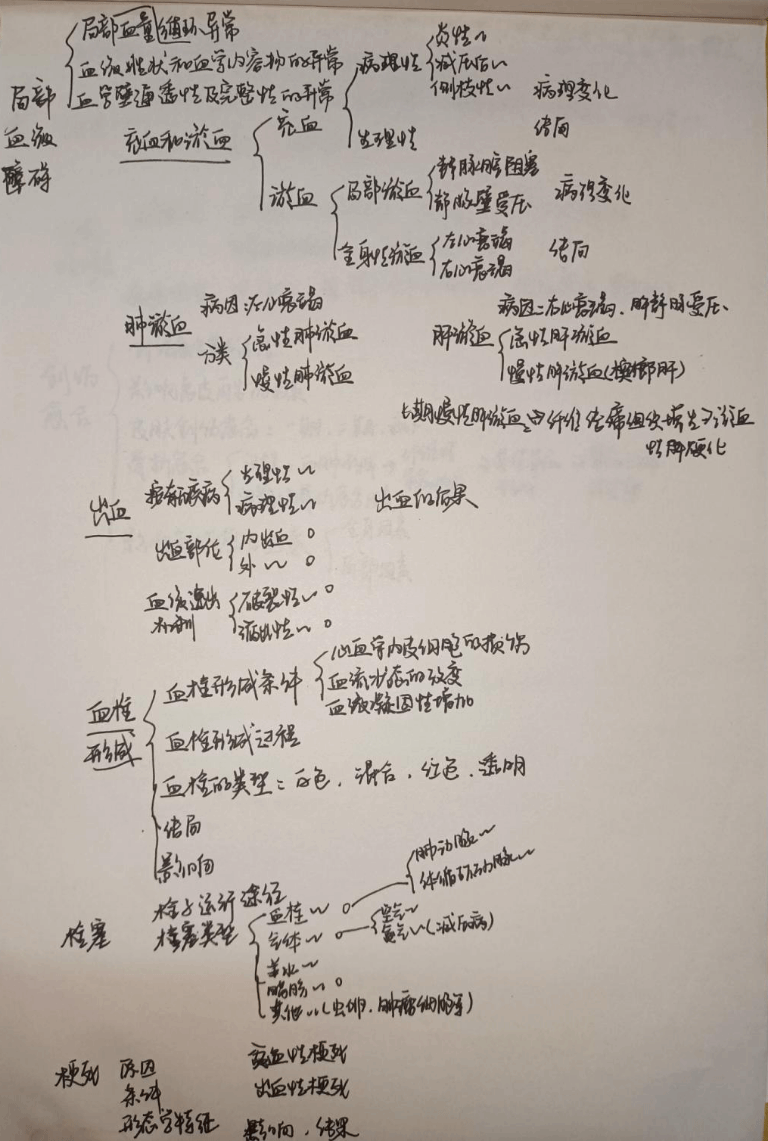 局部血液障碍
局部血量循环异常
血液性状和血管内容物的异常
血管壁通透性及完整性的异常
充血和淤血
充血
病理性
炎性~
减压后~
侧枝性~
生理性
病理变化
结局
淤血
局部淤血
静脉腔阻塞
静脉壁受压
全身性淤血
左心衰竭
右心衰竭
病理变化
结局
肺淤血
病因:左心衰竭
分类
急性肺淤血
慢性肺淤血
肝淤血
病因:右心衰竭、肝静脉受压、
急性肝淤血
慢性肝淤血(槟榔肝)
长期慢性肝淤血 纤维 组织增生→淤血
性肝硬化
出血
有 疾病
生理性~
病理性~
出血的后果
出血部位
内出血
外~
血液溢出
机制
破裂性~
漏出性~
血栓
形成
血栓形成条件
心血管内皮细胞的损伤
血流状态的改变
血液凝固性增加
血栓形成过程
血栓的类型:白色、混合、红色、透明
结局
影响
栓塞
栓子运行途径
栓塞类型
血栓~
肺动脉~
体循环动脉~
气体~
空气~
氮气~(减压病)
羊水~
脂肪~
其他~(虫卵、肿瘤细胞等)
梗死
原因
条件
形态学特征
贫血性梗死
出血性梗死
影响、结果